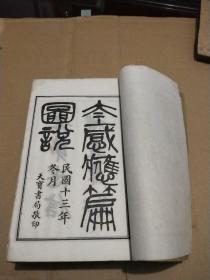 太上感應篇
圖說
民國十三年
冬月
天寶書局敬印